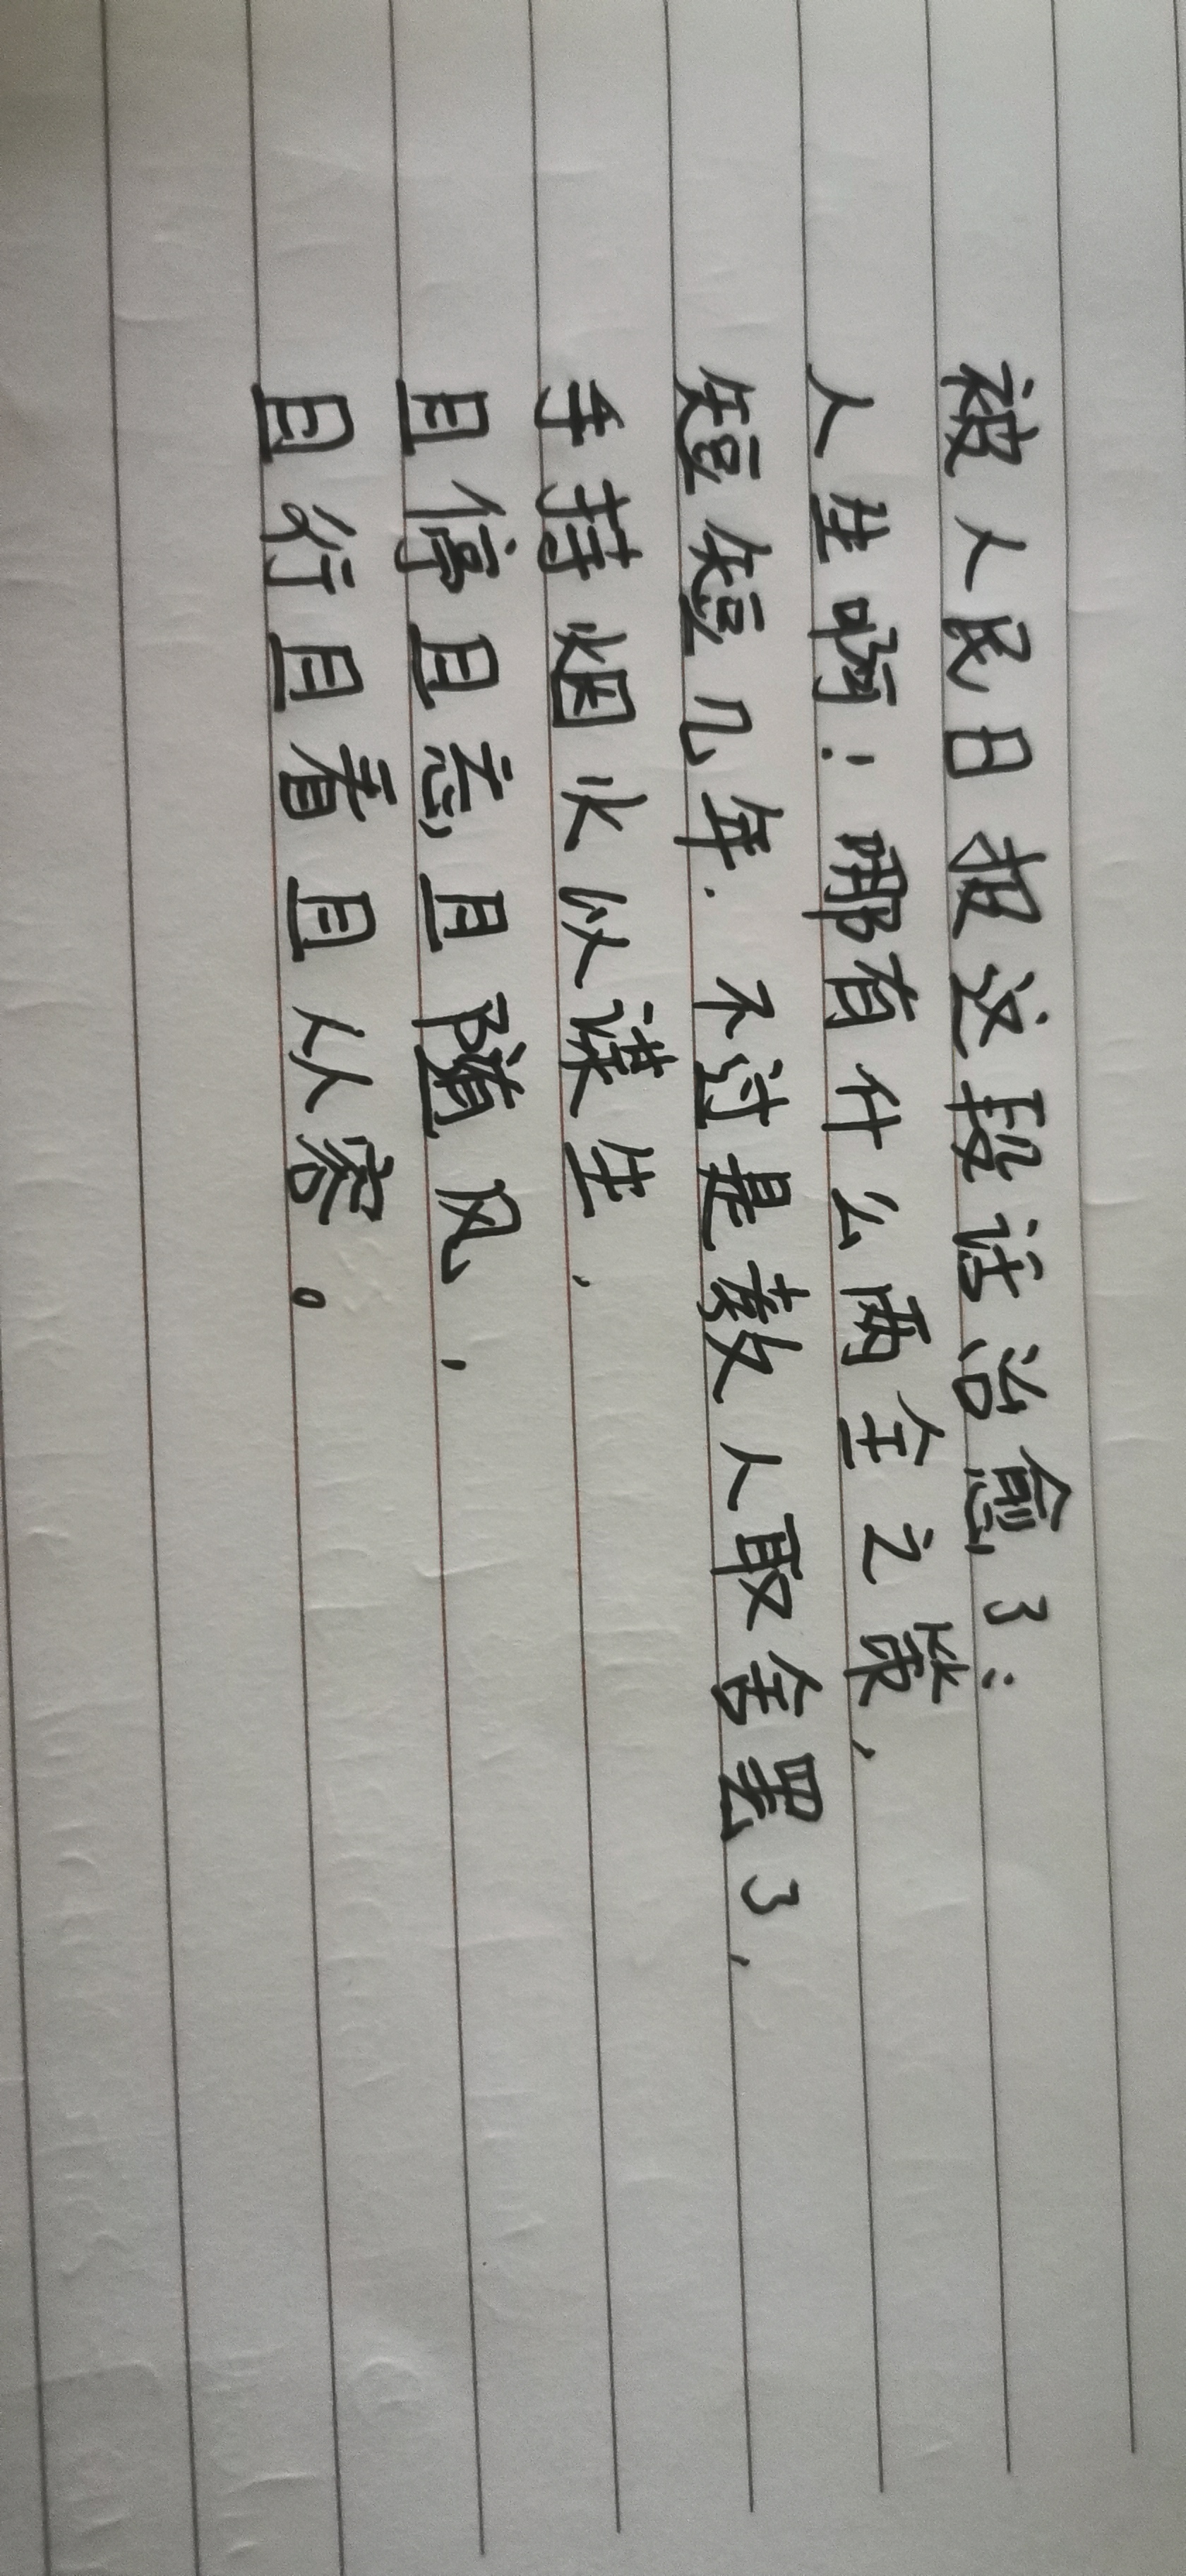 被人民日报这段话治愈了:
人生啊!哪有什么两全之策,
短短几年.不过是教人取舍罢了,
手持烟火以谋生,
且停且忘且随风,
且行且看且从容。